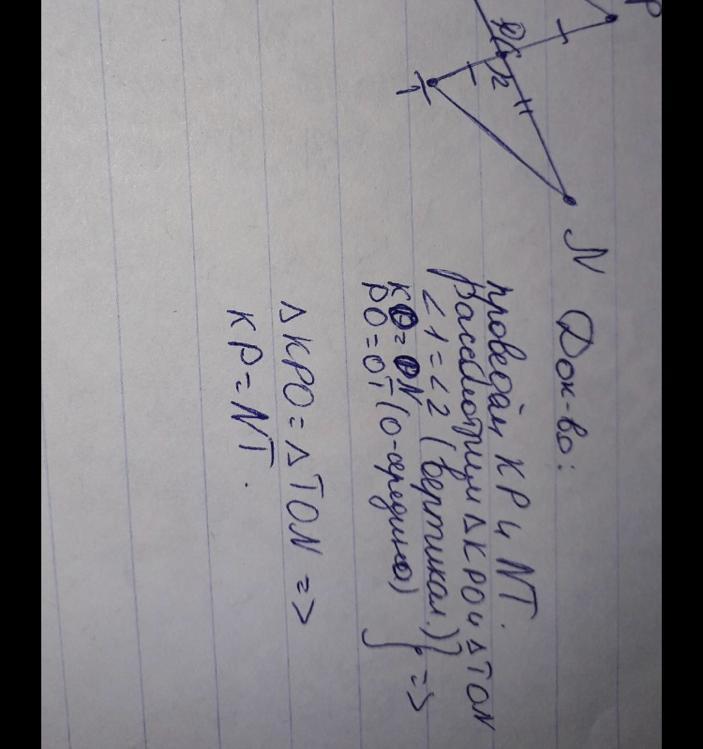 P
1
2
T
N
Док-во:
проведём KP и NT.
Рассмотрим △KPO и △TON
∠1=∠2 (вертикал.)
KO=ON
PO=OT (O-середина) } =>
△KPO=△TON =>
KP=NT.